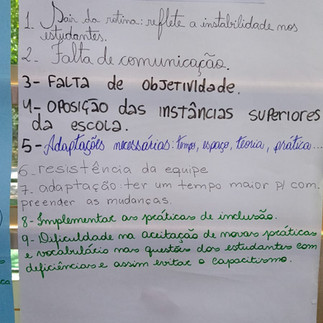 1. Sair da retina: reflete a instabilidade nos
estudantes.
2. Falta de comunicação.
3- FALTA DE OBJETIVIDADE.
4- OPOSIÇÃO DAS INSTÂNCIAS SUPERIORES
DA ESCOLA.
5- Adaptações necessárias: tempo, espaço, teoria, prática...
6. resistência da equipe
7. adaptação: ter um tempo maior p/ com
preender as mudanças.
8- Implementar as práticas de inclusão.
9- Dificuldade na aceitação de novas práticas
e vocabulário nas questões dos estudantes com
deficiências e assim evitar o capacitismo.